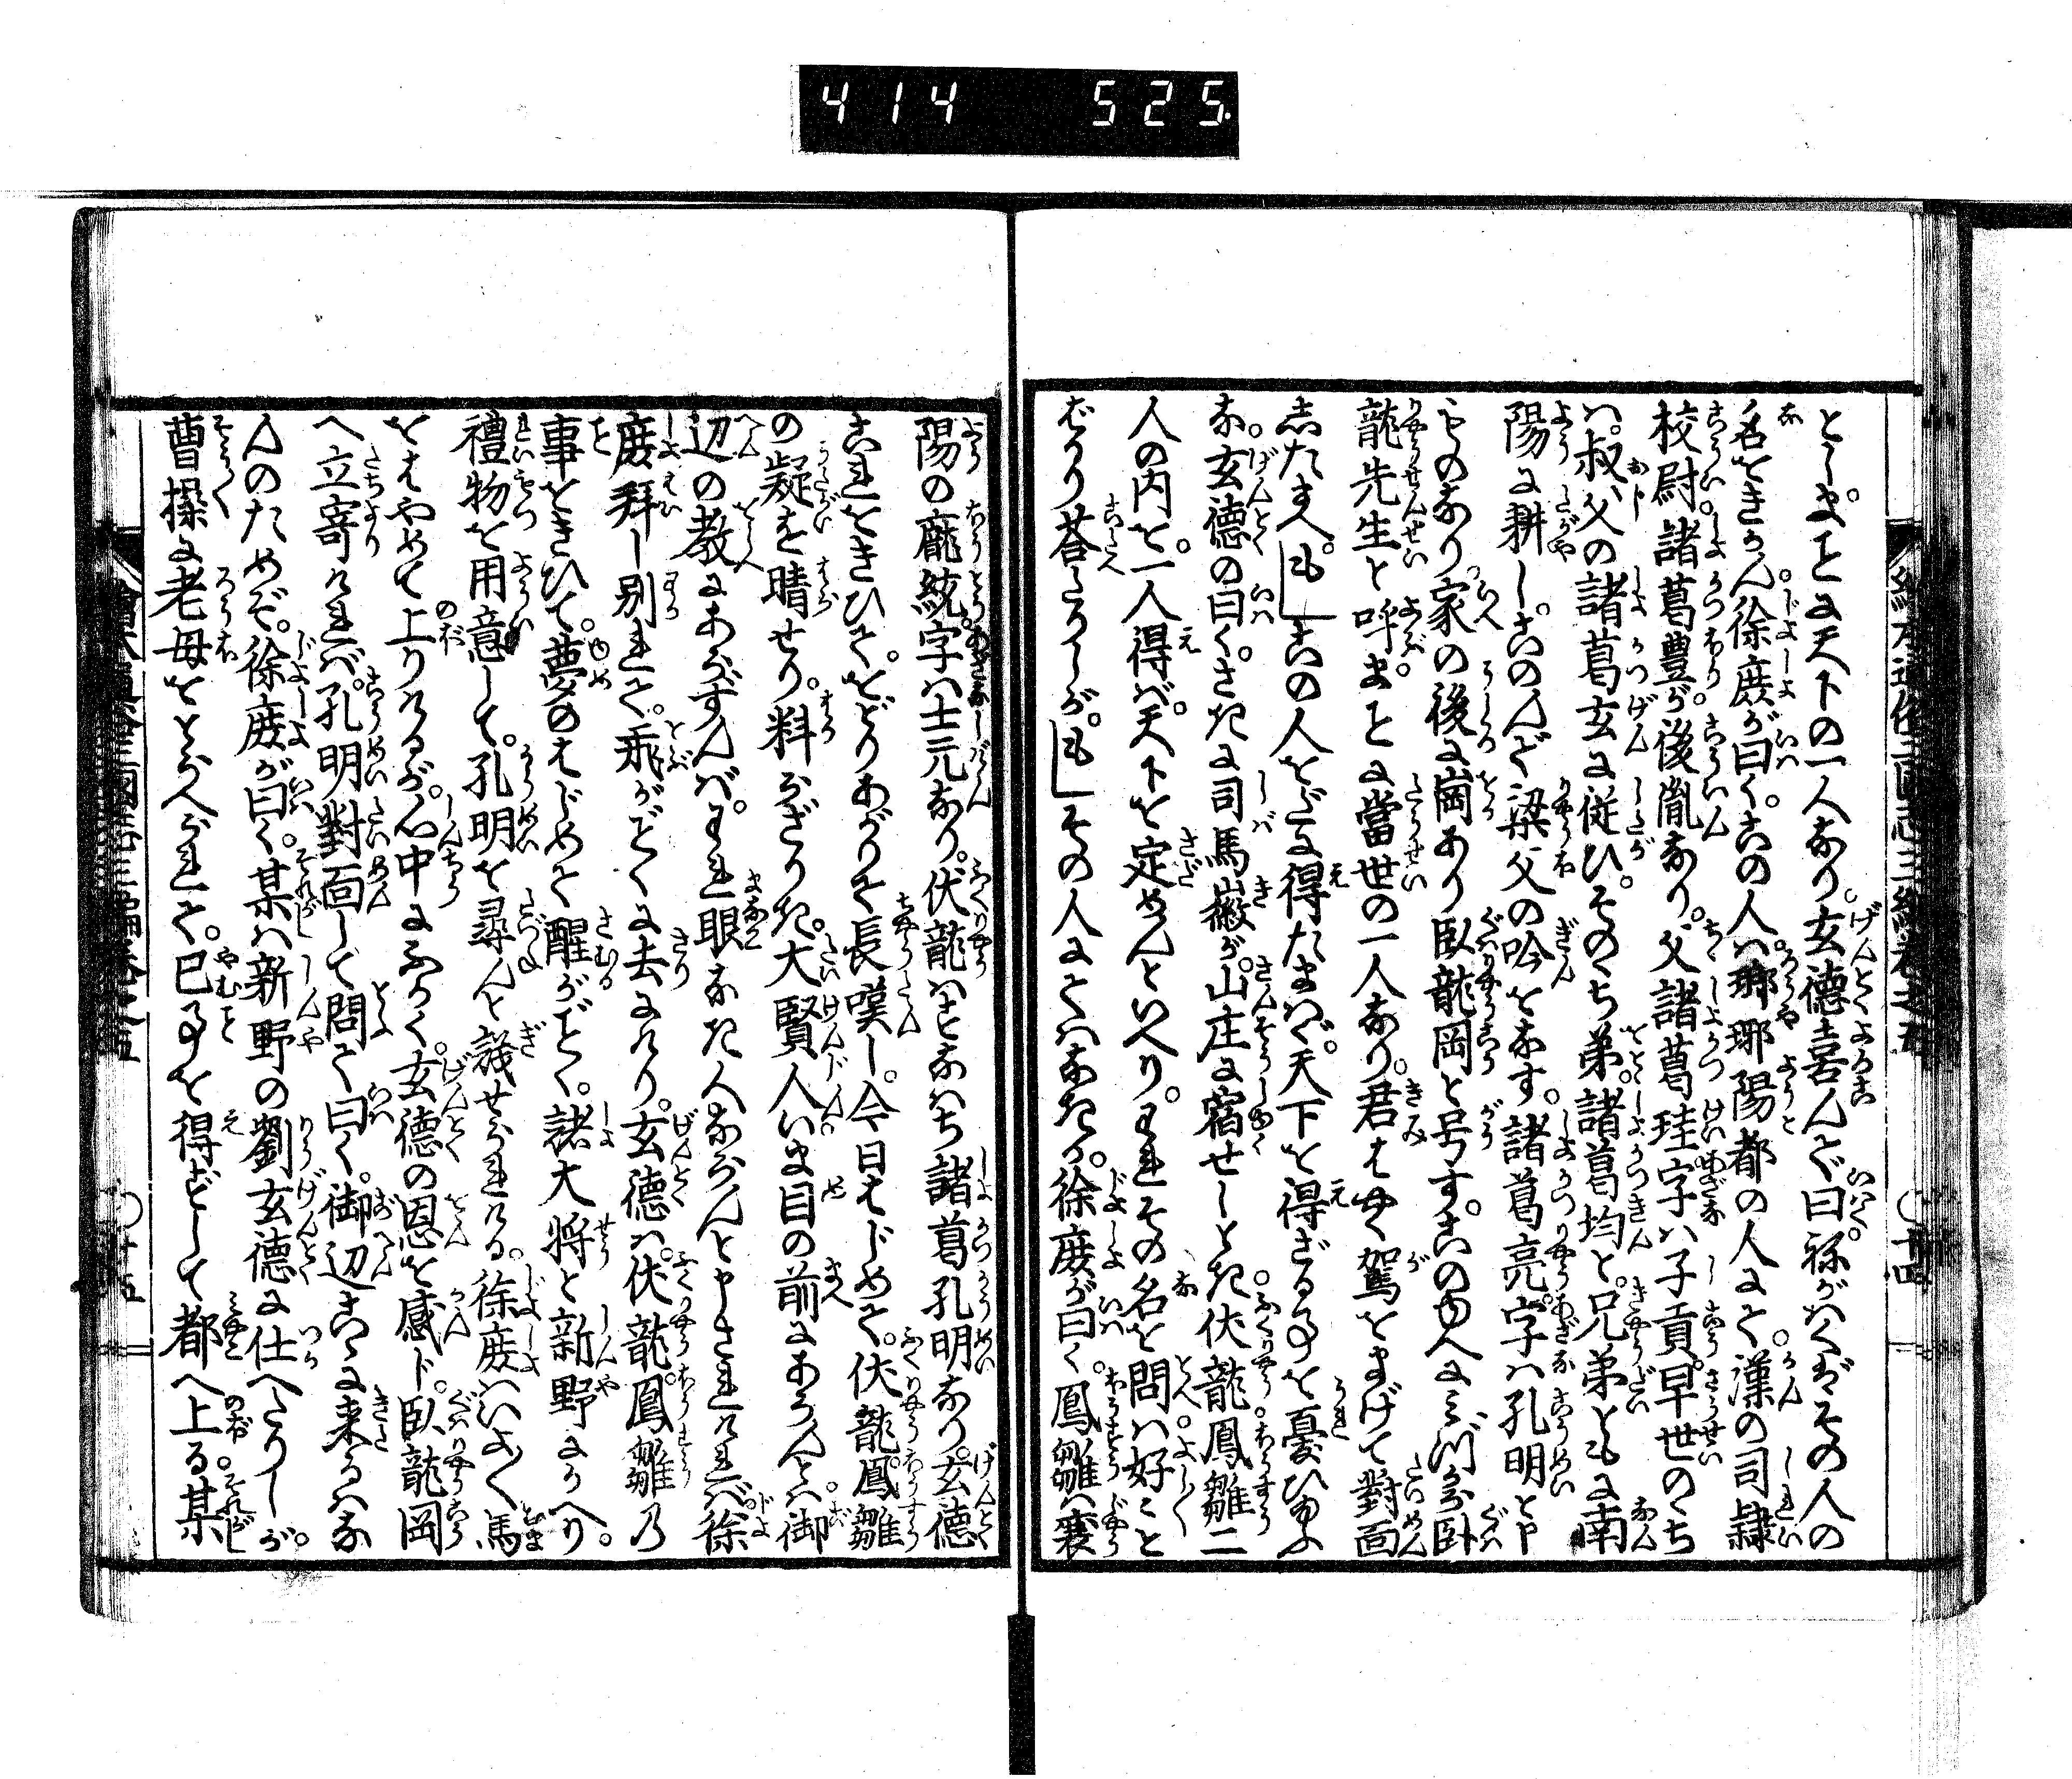 414 525
とし。まことに天下の一人なり。玄徳喜んで曰。祢がはくばその人の
名をきかん。徐庶が曰く。この人ハ。瑯琊陽都の人にて。漢の司隷
校尉。諸葛豊が後胤なり。父諸葛珪字ハ子貢。早世のゝち
ハ。叔父の諸葛玄に従ひ。そのち弟。諸葛均と。兄弟ともに南
陽に耕し。このんで梁父の吟をなす。諸葛亮。字ハ孔明と申
ものなり。家の後に崗あり臥龍岡と号す。このゆへにミづから臥
龍先生と呼。まことに當世の一人なり。君はやく駕をまげて對面
したまへ。もしこの人をだに得たまハゞ。天下を得ざる事を憂ひ給ふ
な。玄徳の曰く。さきに司馬徽が。山庄に宿せしとき。伏龍鳳雛二
人の内を。一人得バ。天下を定めんといへり。われその名を問ハ。好こと
ばかり荅たりしが。もしその人にてハなきか。徐庶が曰く。鳳雛ハ襄
陽の龐統。字ハ士元なり。伏龍ハすなハち諸葛孔明なり。玄徳
これをきひて。をどりあがりて長嘆し。今日はじめて。伏龍鳳雛
の疑を晴せり。料らざりき。大賢人いま目の前にあらんとハ。御
辺の教にあらずんバ。われ眼なき人ならんと申されけれバ。徐
庶拜し別れて。飛がごとくに去にけり。玄徳ハ。伏龍鳳雛乃
事をきひて。夢のはじめて醒がごとく。諸大将と新野にかへり。
禮物を用意して。孔明を尋んと議せられける。徐庶ハいよ〱馬
をはやめて上りけるが。心中にふかく。玄徳の恩を感ド。臥龍岡
へ立寄けれバ。孔明對面して問て曰く。御辺こゝに来るハな
んのためぞ。徐庶が曰く。某ハ新野の劉玄徳に仕へたりしが。
曹操に老母をとらへられて。已事を得ずして都へ上る。某